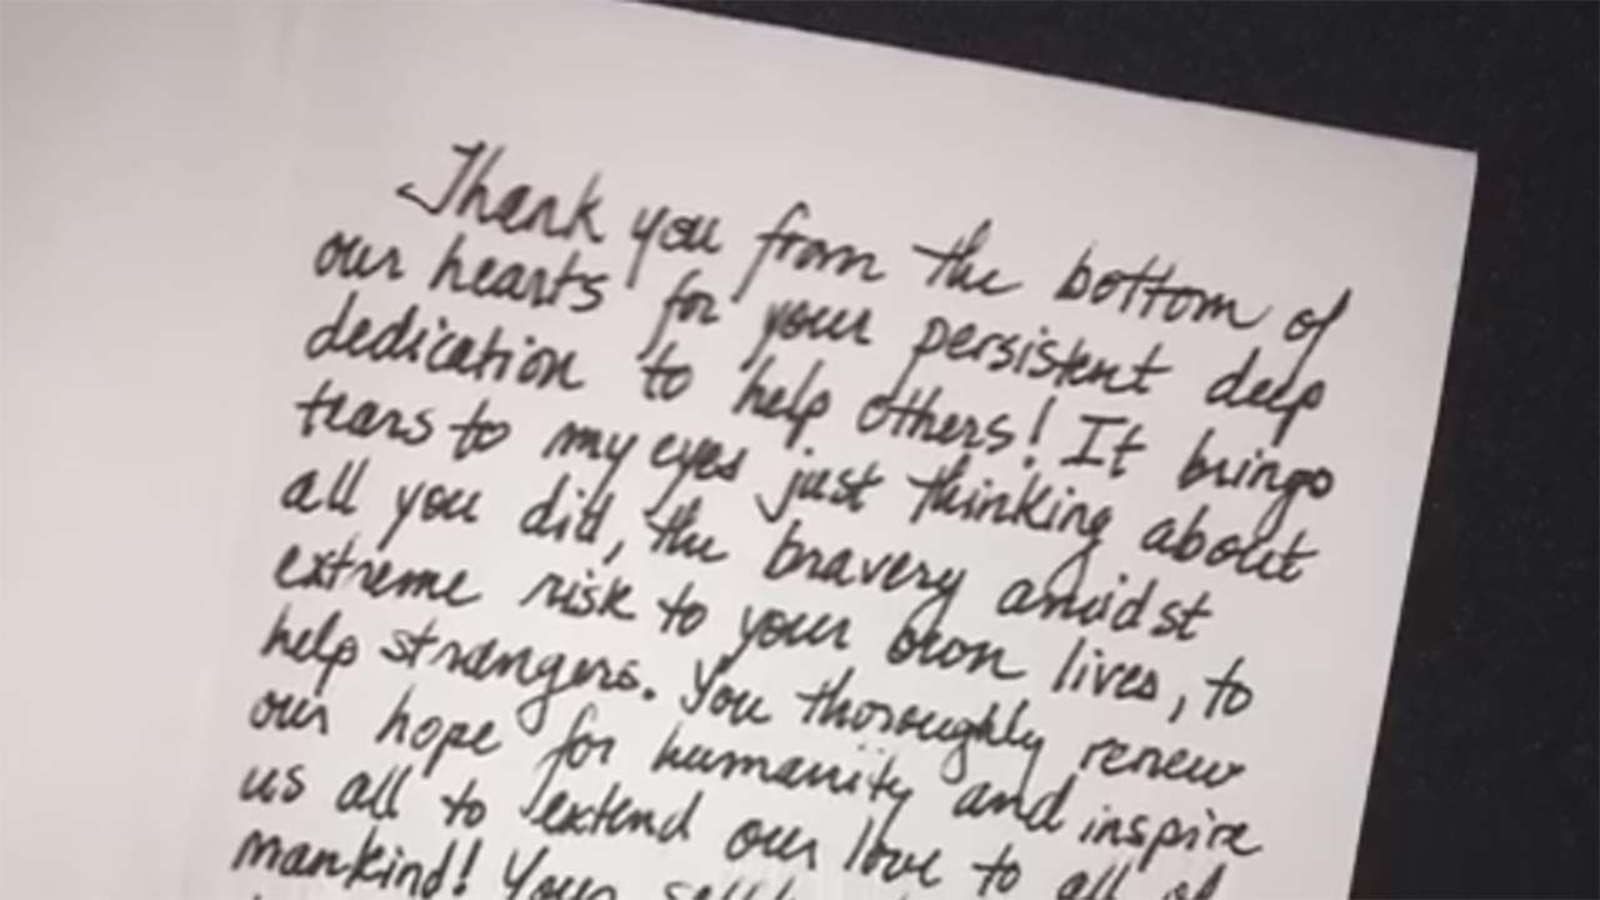 Thank you from the bottom of
our hearts for your persistent deep
dedication to help others! It brings
tears to my eyes just thinking about
all you did, the bravery amidst
extreme risk to your own lives, to
help strangers. You thoroughly renew
our hope for humanity and inspire
us all to extend our love to all of
mankind! Your